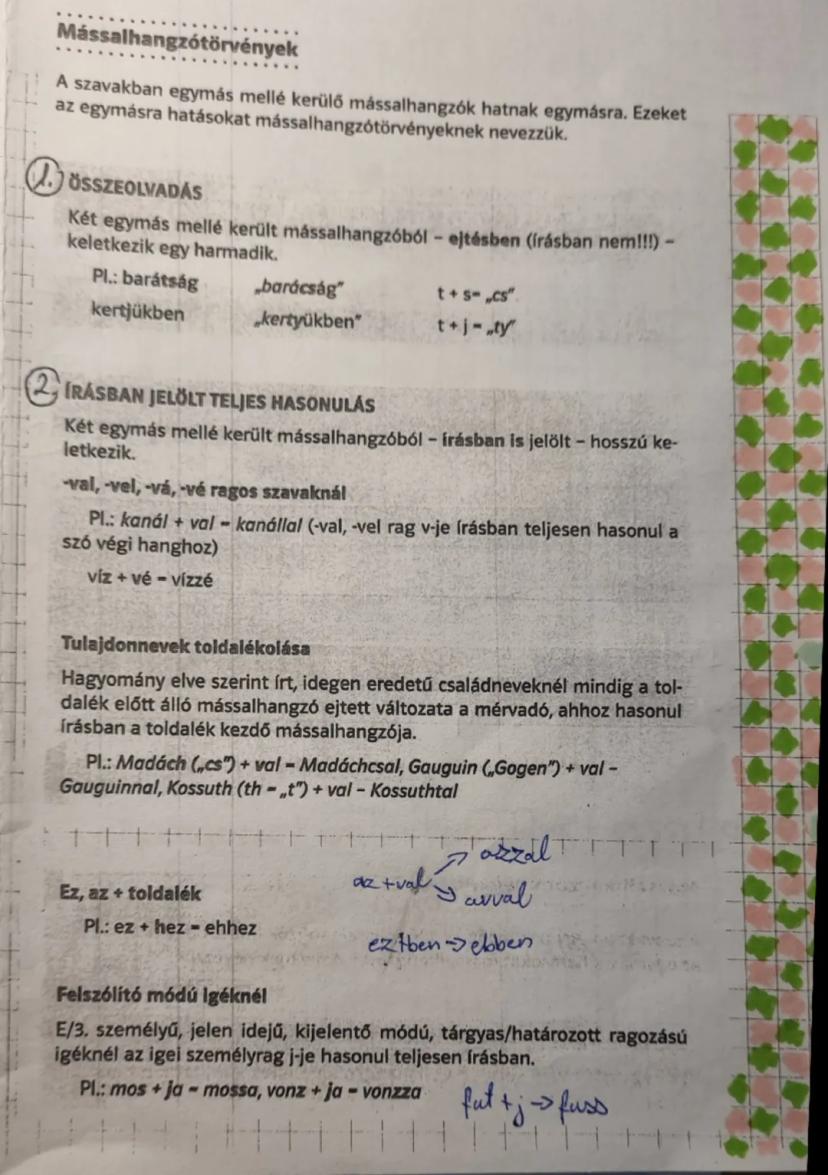 Mássalhangzótörvények
A szavakban egymás mellé kerülő mássalhangzók hatnak egymásra. Ezeket
az egymásra hatásokat mássalhangzótörvényeknek nevezzük.
1. ÖSSZEOLVADÁS
Két egymás mellé került mássalhangzóból – ejtésben (írásban nem!!!) –
keletkezik egy harmadik.
Pl.: barátság „barócság" t + s= „cs"
kertjükben „kertyükben" t + j = „ty"
2, ÍRÁSBAN JELÖLT TELJES HASONULÁS
Két egymás mellé került mássalhangzóból – írásban is jelölt – hosszú ke-
letkezik.
-val, -vel, -vá, -vé ragos szavaknál
Pl.: kanál + val = kanállal (-val, -vel rag v-je írásban teljesen hasonul a
szó végi hanghoz)
víz + vé = vízzé
Tulajdonnevek toldalékolása
Hagyomány elve szerint írt, idegen eredetű családneveknél mindig a tol-
dalék előtt álló mássalhangzó ejtett változata a mérvadó, ahhoz hasonul
írásban a toldalék kezdő mássalhangzója.
Pl.: Madách („cs") + val = Madáchcsal, Gauguin („Gogen") + val –
Gauguinnal, Kossuth (th = „t") + val – Kossuthtal
azzal
az + val
avval
Ez, az + toldalék
Pl.: ez + hez = ehhez
ez+ben → ebben
Felszólító módú igéknél
E/3. személyű, jelen idejű, kijelentő módú, tárgyas/határozott ragozású
igéknél az igei személyrag j-je hasonul teljesen írásban.
Pl.: mos + ja = mossa, vonz + ja = vonzza
fut + j → fuss